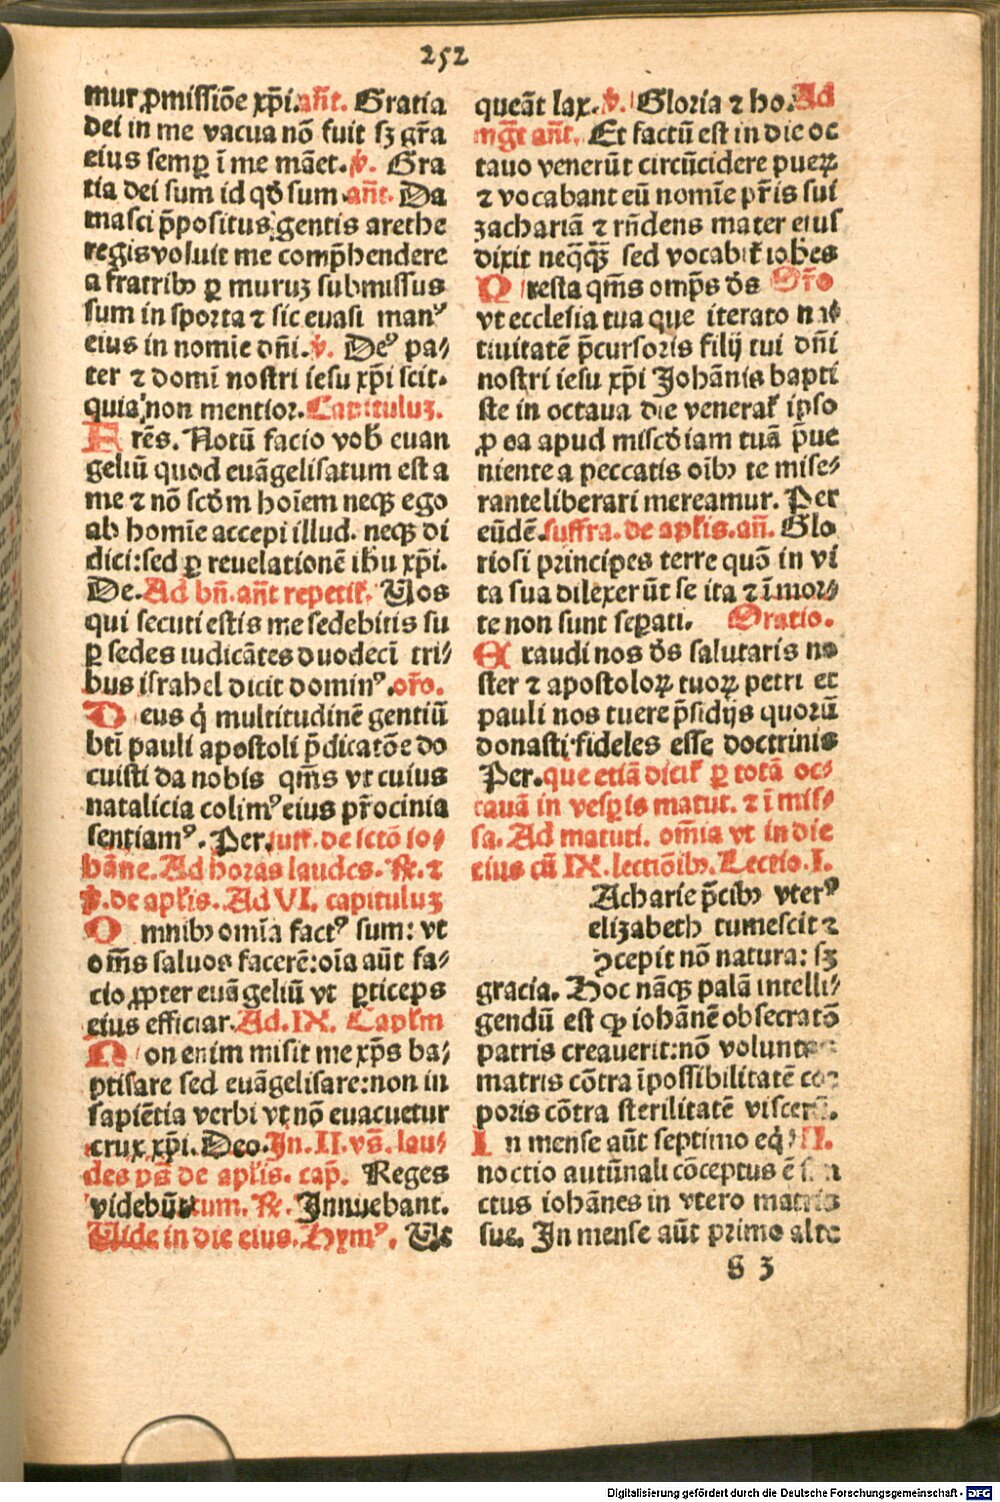 252
mur ꝓmissiōe xp̄i. an̄t. Gratia
dei in me vacua nō fuit sꝫ gr̄a
eius semꝑ ī me māet. ꝟ. Gra
tia dei sum id qḋ sum. an̄t. Da
masci p̄positus gentis arethe
regis voluit me comp̄hendere
a fratribꝰ ꝑ muruꝫ submissus
sum in sporta ⁊ sic euasi manꝰ
eius in nomīe dn̄i. ꝟ. Deꝰ pa⸗
ter ⁊ domī nostri iesu xp̄i scit.
quia non mentior. Capituluꝫ.
Fres. Notū facio vob̄ euan
geliū quod euāgelisatum est a
me ⁊ nō scḋm hoīem neqꝫ ego
ab homīe accepi illud. neqꝫ di
dici: sed ꝑ reuelationē ihū xp̄i.
De. Ad bn̄. an̄t repetit̄. Uos
qui secuti estis me sedebitis su
ꝑ sedes iudicātes duodecī tri⸗
bus israhel dicit dominꝰ. or̄o.
Deus q̇ multitudinē gentiū
bt̄i pauli apostoli p̄dicatōe do
cuisti da nobis qm̄s vt cuius
natalicia colimꝰ eius pr̄ocinia
sentiamꝰ. Per. suff. de sctō io⸗
hāne. Ad horas laudes. ℞. ⁊
ꝟ. de apl̄is. Ad VI. capituluꝫ
Omnibꝰ omīa factꝰ sum: vt
om̄s saluos facerē: oīa aūt fa⸗
cio ꝓpter euāgeliū vt ꝑticeps
eius efficiar. Ad. IX. Capl̄m
Non enim misit me xp̄s ba⸗
ptisare sed euāgelisare: non in
sapiētia verbi vt nō euacuetur
crux xp̄i. Deo. In. II. vs̄. lau⸗
des ps̄ de apl̄is. cap̄. Reges
videbūt cum. ℞. Innuebant.
Uide in die eius. Hymꝰ. Ut
queāt lax. ꝟ. Gloria ⁊ ho. Ad
mgt̄ an̄t. Et factū est in die oc
tauo venerūt circūcidere pueꝝ
⁊ vocabant eū nomīe pr̄is sui
zachariā ⁊ rn̄dens mater eius
dixit neq̄qꝫ sed vocabit̄ iohēs
Presta qm̄s omp̄s ds̄ Or̄o
vt ecclesia tua que iterato na
tiuitatē p̄cursoris filij tui dn̄i
nostri iesu xp̄i Johānis bapti
ste in octaua die venerat̄ ipso
ꝓ ea apud miscḋiam tuā p̄ue
niente a peccatis oībꝰ te mise⸗
rante liberari mereamur. Per
eūdē. suffra. de apl̄is. an̄. Glo
riosi principes terre quō in vi
ta sua dilexerūt se ita ⁊ ī mor⸗
te non sunt seꝑati. Oratio.
Exaudi nos ds̄ salutaris no
ster ⁊ apostoloꝝ tuoꝝ petri et
pauli nos tuere p̄sidijs quorū
donasti fideles esse doctrinis
Per. que etiā dicit̄ ꝑ totā oc⸗
tauā in vesꝑis matut. ⁊ ī mis⸗
sa. Ad matuti. om̄ia vt in die
eius cū IX. lectiōibꝰ. Lectio. I.
Acharie p̄cibꝰ vterꝰ
elizabeth tumescit ⁊
ꝯcepit nō natura: sꝫ
gracia. Hoc nāqꝫ palā intelli⸗
gendū est ꝙ iohānē obsecratō
patris creauerit: nō voluntas
matris cōtra īpossibilitatē cor
poris cōtra sterilitatē viscerū.
In mense aūt septimo eq̇
noctio autūnali cōceptus ē san
ctus iohānes in vtero matris
sue. In mense aūt primo alte
S 3
Digitalisierung gefördert durch die Deutsche Forschungsgemeinschaft - DFG